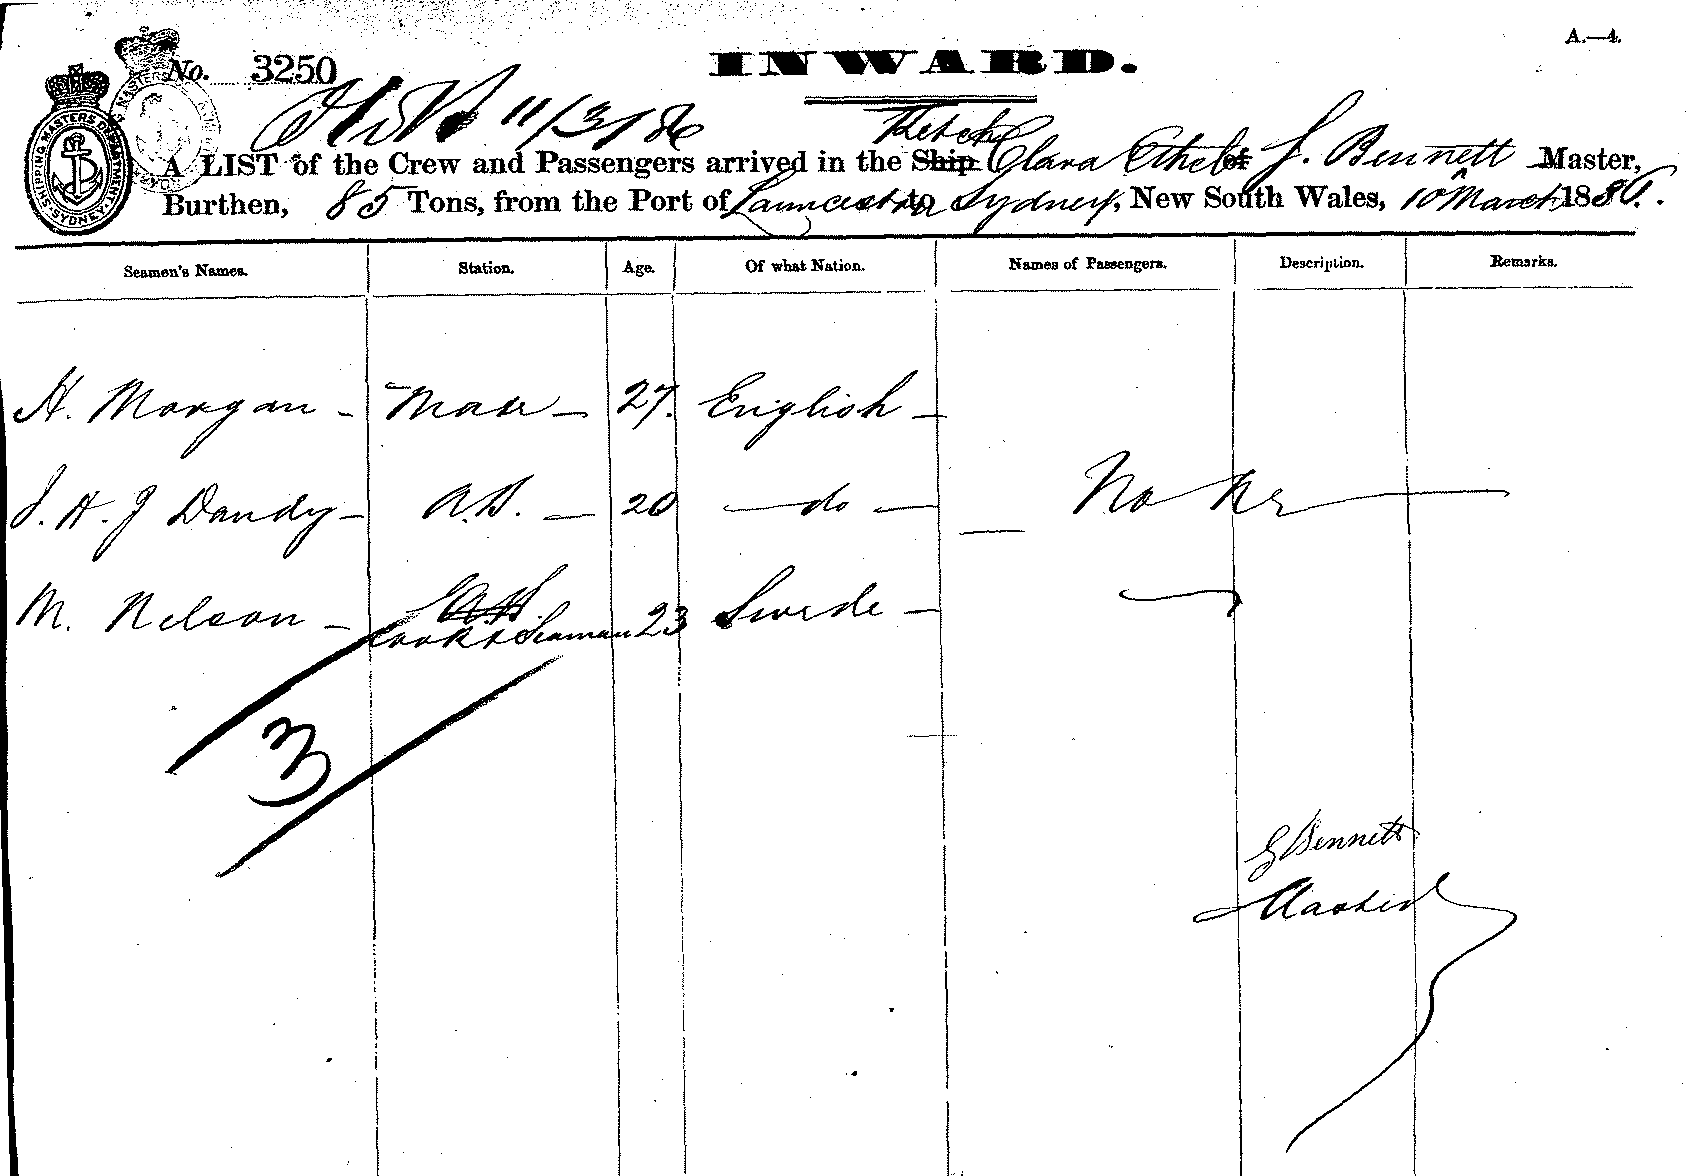 A.—4.
No. 3250
INWARD.
11/3/86
Ketch
A LIST of the Crew and Passengers arrived in the Ship Clara Ethel of J. Bennett Master,
Burthen, 85 Tons, from the Port of Launceston to Sydney, New South Wales, 10 March 1886.
SHIPPING MASTERS DEPARTMENT SYDNEY
Seamen's Names. Station. Age. Of what Nation. Names of Passengers. Description. Remarks.
H. Morgan – Mate – 27. English –
J. H. J Dandy – A.B. – 20 – do –
No ne
M. Nelson – A.B. Cook & Seaman 23 Swede –
3
G Bennett
Master